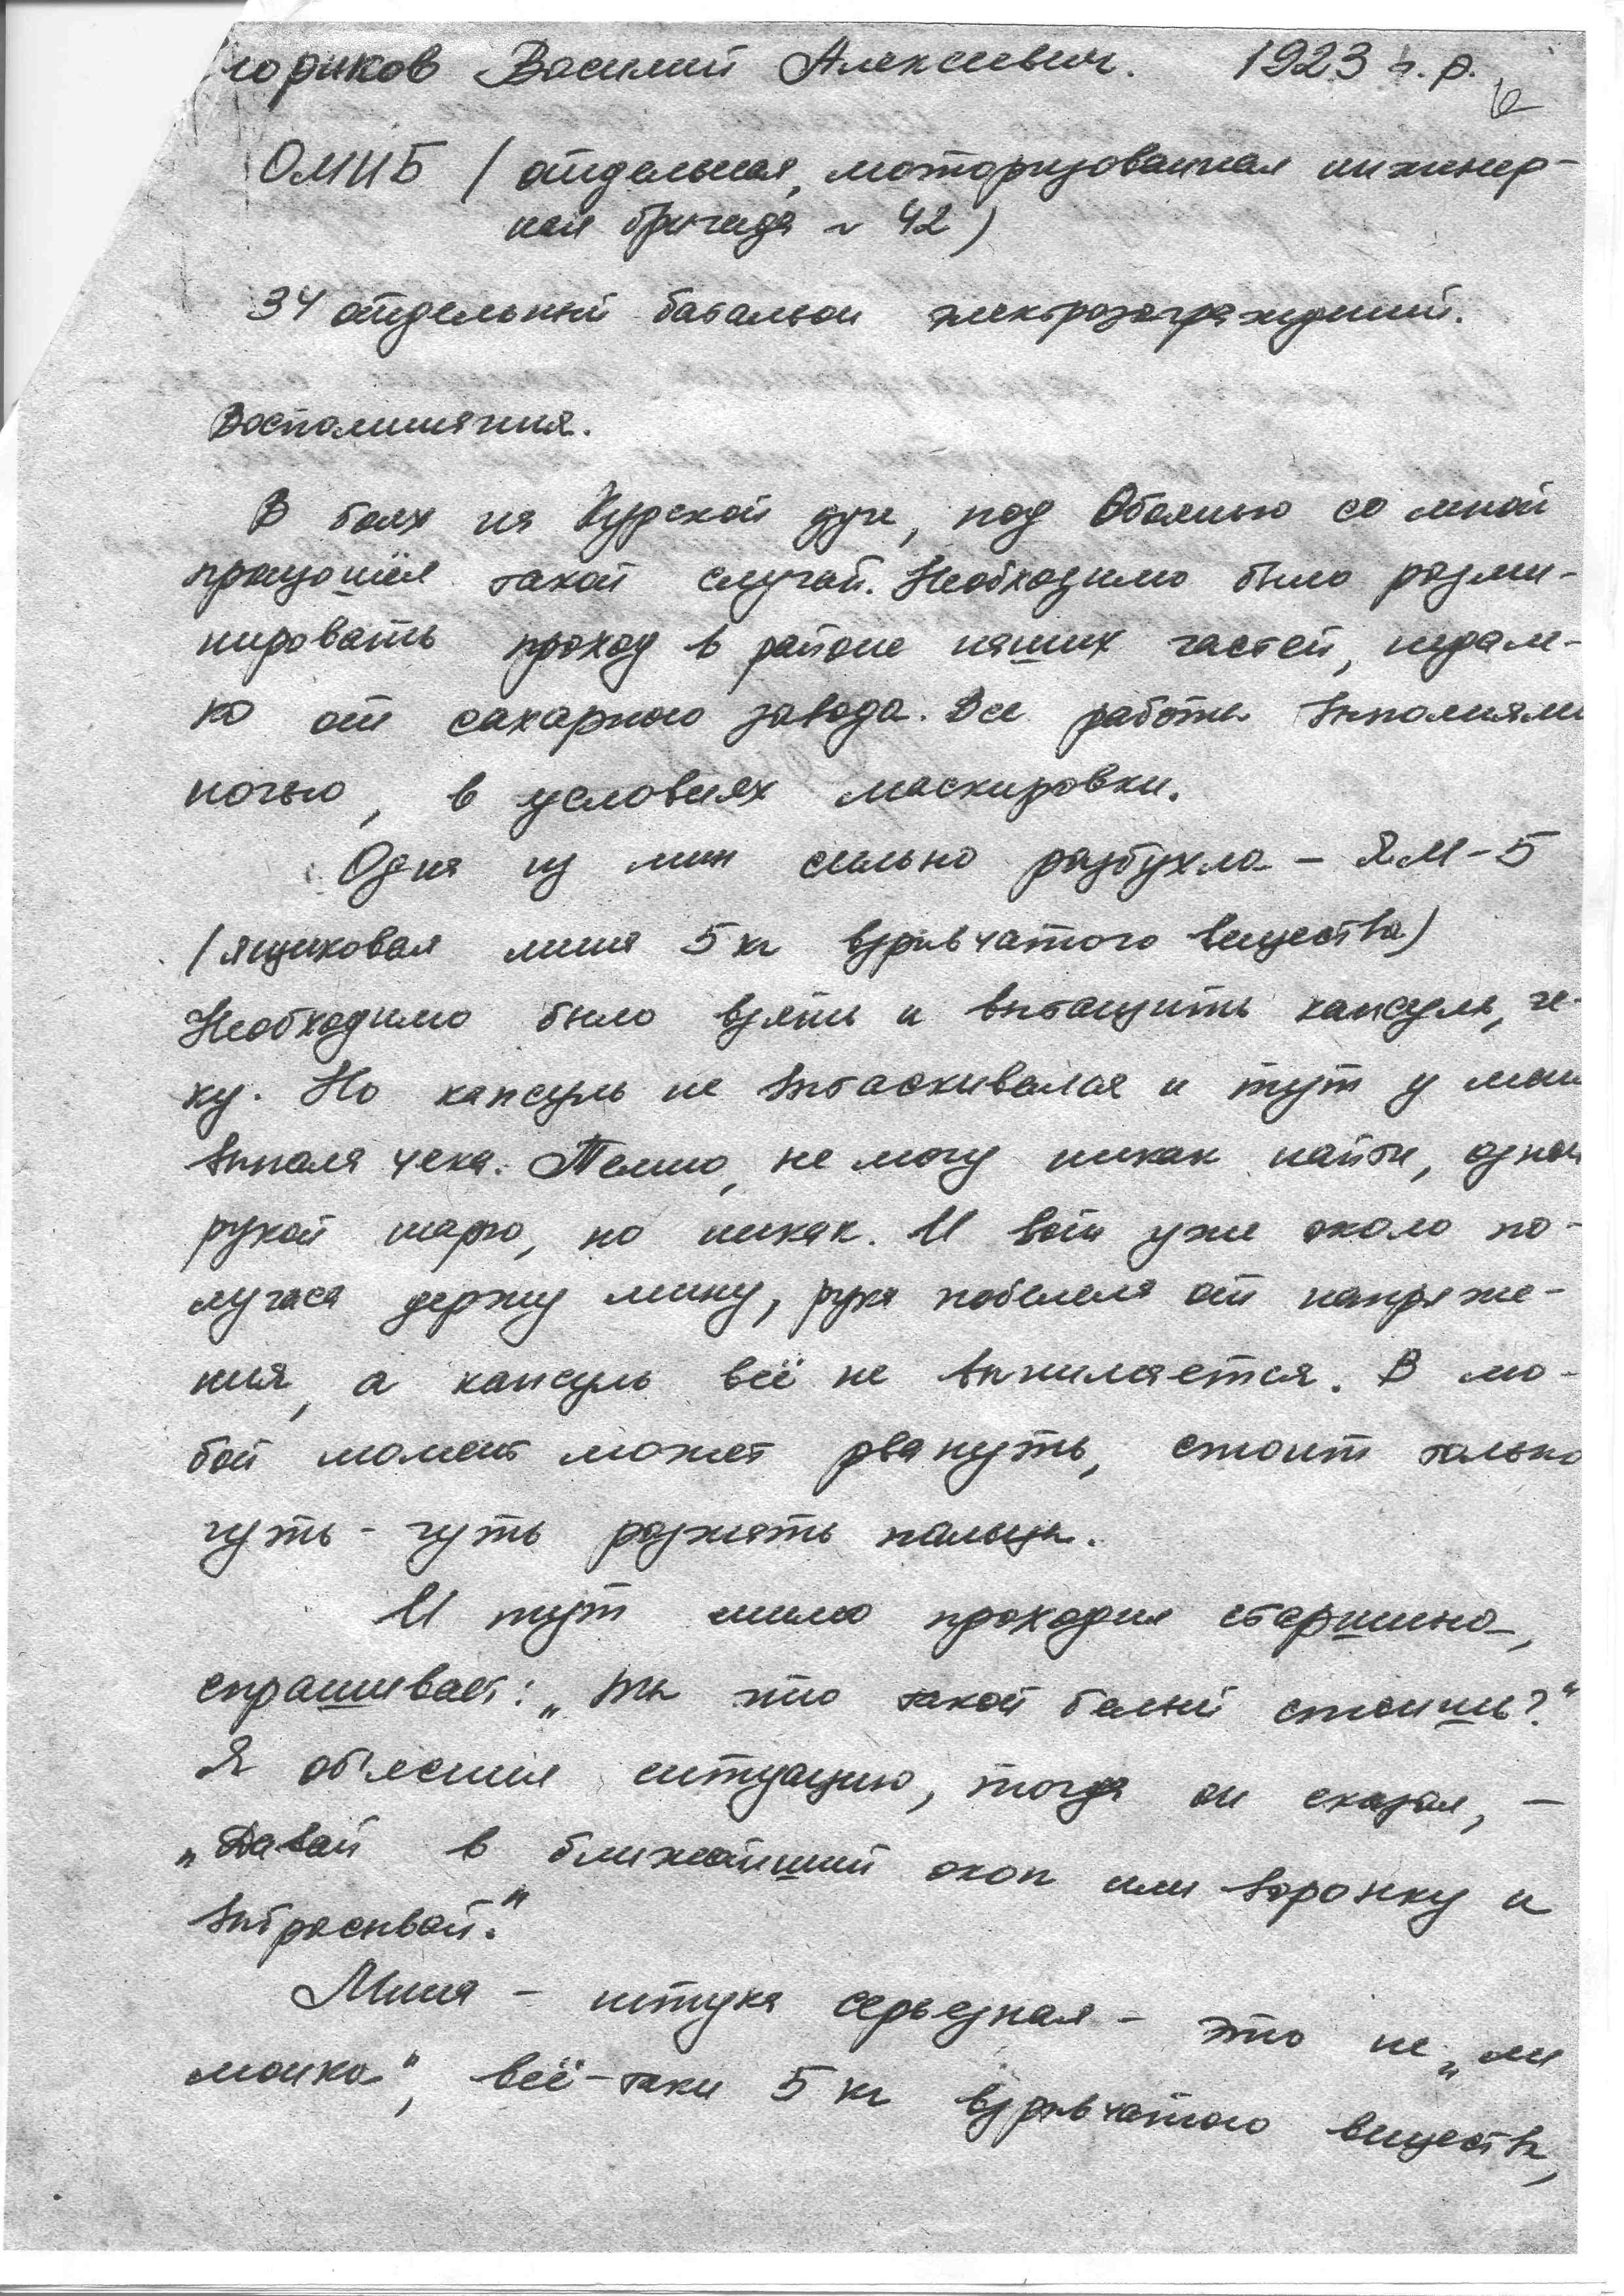 гориков Василий Алексеевич. 1923 г. р.
ОМИБ / отдельная, моторизованная инженер-
ная бригада № 42)
34 отдельный батальон электрозаграждений.
Воспоминания.
В боях на Курской дуге, под Обоянью со мной
произошёл такой случай. Необходимо было разми-
нировать проход в районе наших частей, недале-
ко от сахарного завода. Все работы выполняли
ночью, в условиях маскировки.
Одна из мин сильно разбухла – ЯМ-5
/ ящиковая мина 5 кг взрывчатого вещества)
Необходимо было взять и вытащить капсуль, че-
ку. Но капсуль не вытаскивался и тут у мины
выпала чека. Темно, не могу никак найти, одной
рукой шарю, но никак. И вот уже около по-
лучаса держу мину, рука побелела от напряже-
ния, а капсуль всё не вынимается. В лю-
бой момент может рвануть, стоит только
чуть-чуть разжать пальцы.
И тут мимо проходил старшина,
спрашивает: „Ты что такой белый стоишь?“
Я объяснил ситуацию, тогда он сказал, –
„Давай в ближайший окоп или воронку и
выбрасывай."
Мина – штука серьезная – это не „ли
монка", всё-таки 5 кг взрывчатого веществ,